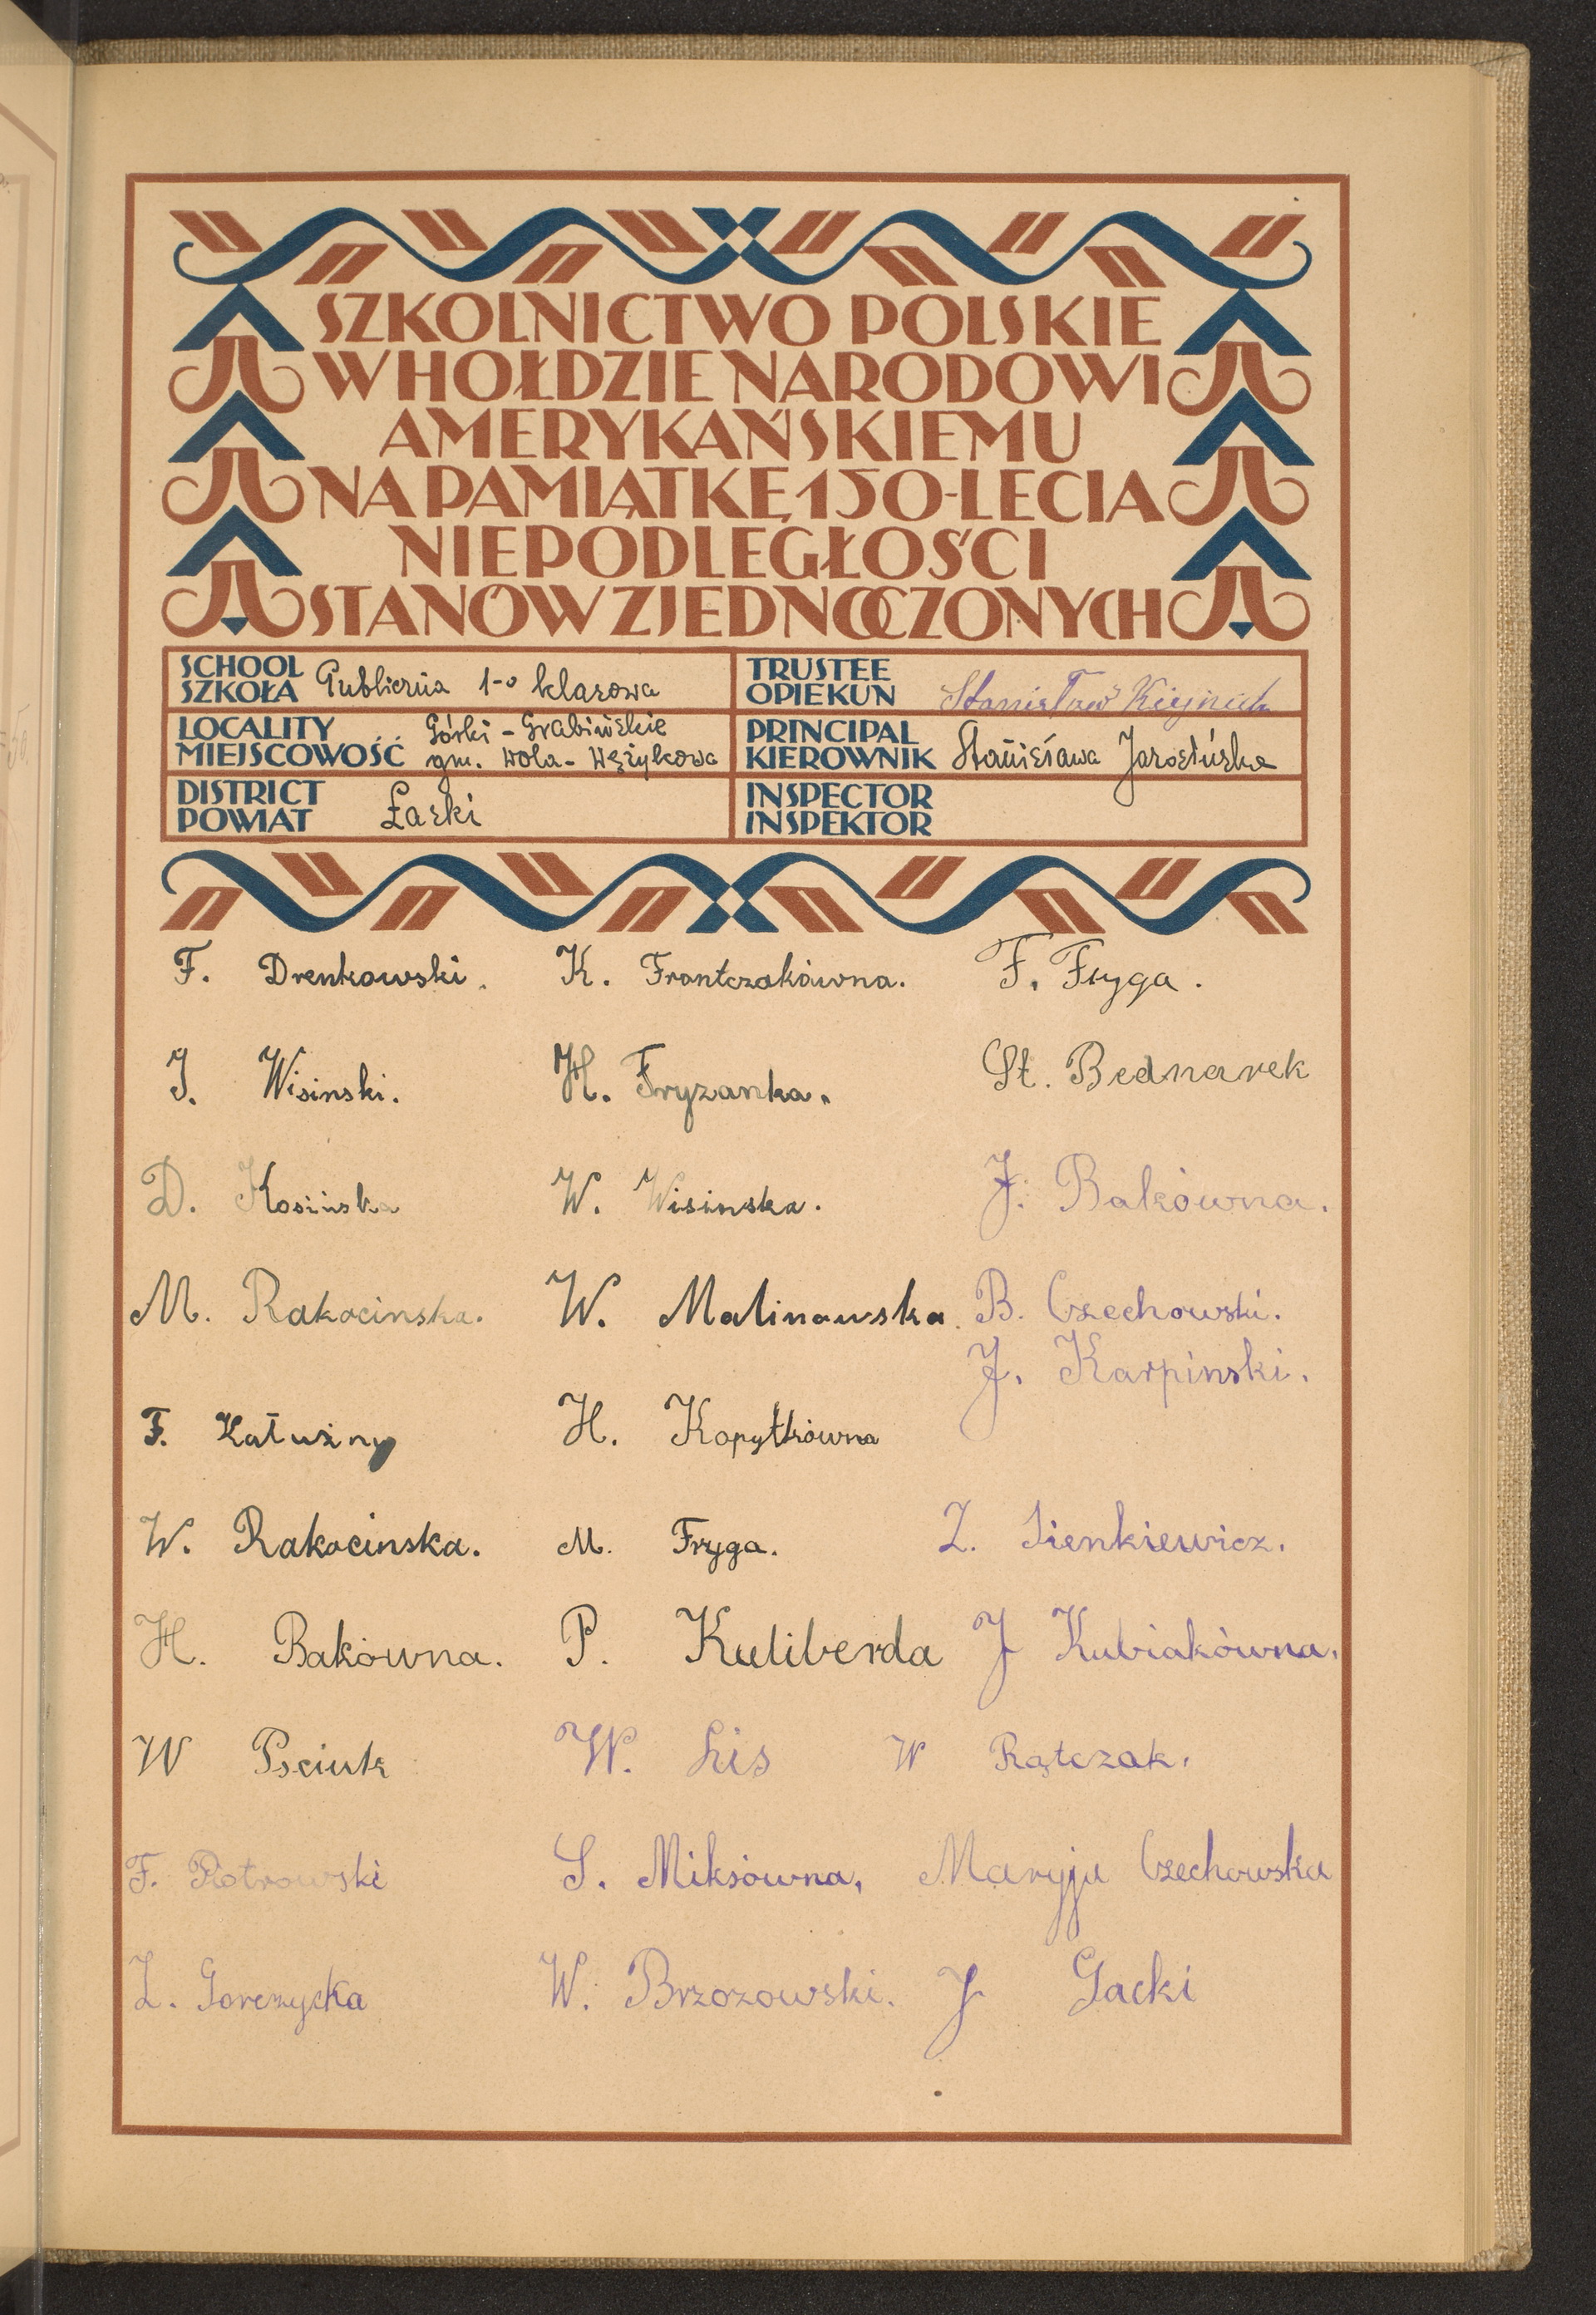 SZKOLNICTWO POLSKIE
W HOŁDZIE NARODOWI
AMERYKAŃSKIEMU
NA PAMIĄTKĘ 150-LECIA
NIEPODLEGŁOŚCI
STANÓW ZJEDNOCZONYCH
SCHOOL
SZKOŁA Publiczna 1-o klasowa
TRUSTEE
OPIEKUN Stanisław
LOCALITY Górki - Grabińskie
MIEJSCOWOŚĆ gm. Wola - Wężykowa
PRINCIPAL
KIEROWNIK Stanisława Jarosińska
DISTRICT
POWIAT Łaski
INSPECTOR
INSPEKTOR
F. Drenkowski. K. Frontczakówna. F. Fryga.
J. Wisinski. H. Fryzanka. St. Bednarek
D. Kosińska W. Wisinska. J. Bakówna.
M. Rakocinska. W. Malinowska. B. Czechowski.
J. Karpinski.
F. Kałużny H. Kopytkówna
W. Rakocinska. M. Fryga. Z. Sienkiewicz.
H. Bakówna. P. Kuliberda J Kubiakówna.
W Psciuk W. Lis W Rątczak.
F. Piotrowski S. Miksówna, Maryja Czechowska
Z. Gorczycka W. Brzozowski. J Gacki